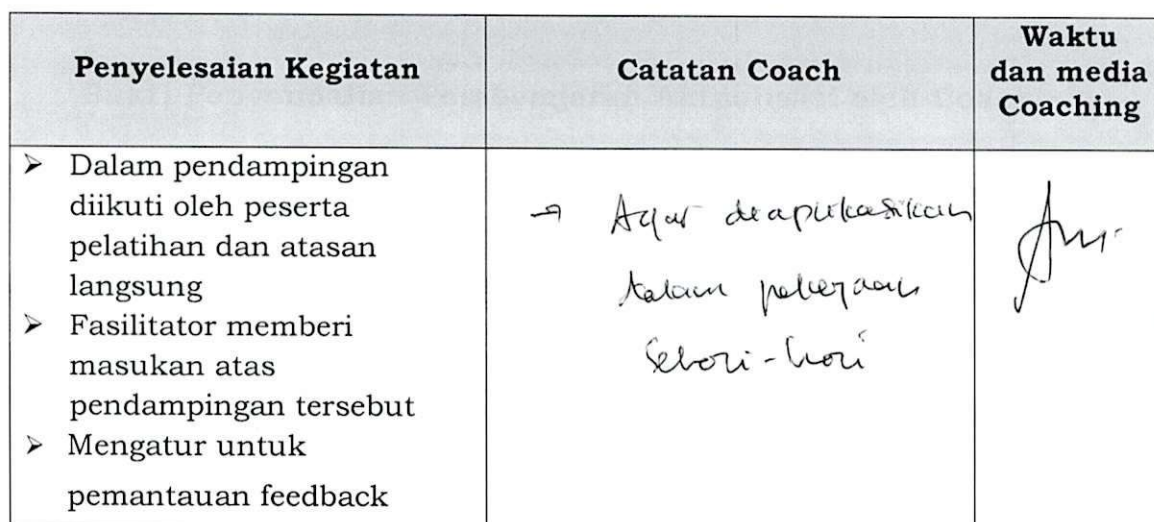 Penyelesaian Kegiatan
Catatan Coach
Waktu
dan media
Coaching
➢ Dalam pendampingan
diikuti oleh peserta
pelatihan dan atasan
langsung
➢ Fasilitator memberi
masukan atas
pendampingan tersebut
➢ Mengatur untuk
pemantauan feedback
→ Agar diaplikasikan
dalam pekerjaan
sehari-hari